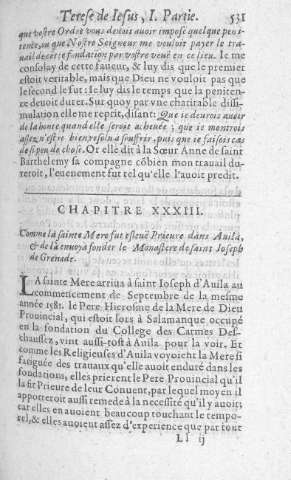 Terese de Iesus, I. Partie. 531
que vostre Ordre vous devois auoir imposé quelque peni-
tence, ou que Nostre Seigneur me vouloit payer le tra-
uail de cette fondation par vostre venuë en ce lieu. Ie me
consolay de cette faueur, & luy dis que le premier
estoit veritable, mais que Dieu ne vouloit pas que
le second le fut: Ie luy dis le temps que la peniten-
ce deuoit durer. Sur quoy par vne charitable dissi-
mulation elle me reprit, disant: Que ie deurois auoir
de la honte quand elle seroit acheuée; que ie monstrois
assez n'estre bien resolu à souffrir, puis que ie faisois cas
de si peu de chose. Or elle dit à la Sœur Anne de saint
Barthelemy sa compagne cõbien mon trauail du-
reroit, l'euenement fut tel qu'elle l'auoit predit.
CHAPITRE XXXIII.
Comme la sainte Mere fut esleuë Prieure dans Auila,
& de là enuoya fonder le Monastere de saint Ioseph
de Grenade.
LA sainte Mere arriua à saint Ioseph d'Auila au
commencement de Septembre de la mesme
année 1581. le Pere Hierosme de la Mere de Dieu
Prouincial, qui estoit lors à Salamanque occupé
en la fondation du College des Carmes Des-
chaussez, vint aussi-tost à Auila pour la voir, Et
comme les Religieuses d'Auila voyoiẽt la Mere si
fatiguée des trauaux qu'elle auoit enduré dans les
fondations, elles prierent le Pere Prouincial qu'il
la fit Prieure de leur Conuent, par lequel moyen il
apporteroit aussi remede à la necessité qu'il y auoit;
car elles en auoient beaucoup touchant le tempo-
rel, & elles auoient assez d'experience que par tout
Ll ij